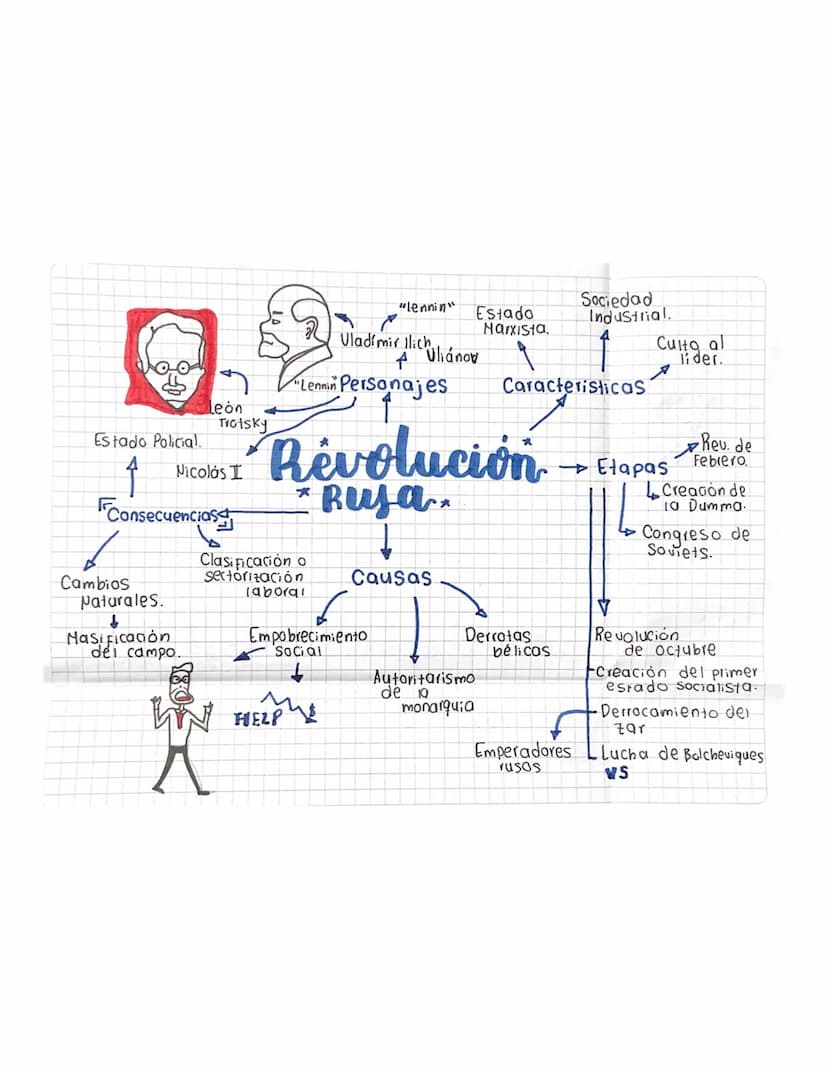 "lennin"
Vladímir Ilich
Uliánov
"Lennin" Personajes
León
Trotsky
Nicolás II
Estado
Marxista.
Sociedad
Industrial.
Culto al
líder.
Características
Revolución
Rusa
Etapas
Rev. de
Febrero.
Creación de
la Dumma.
Congreso de
Soviets.
Revolución
de octubre
Creación del primer
estado socialista.
Derrocamiento del
zar
Emperadores
rusos
Lucha de Bolcheviques
vs
Estado Policial.
Consecuencias
Clasificación o
sectorización
laboral
Cambios
Naturales.
Masificación
del campo.
Causas
Empobrecimiento
social
HELP
$
Autoritarismo
de la
monarquía
Derrotas
bélicas